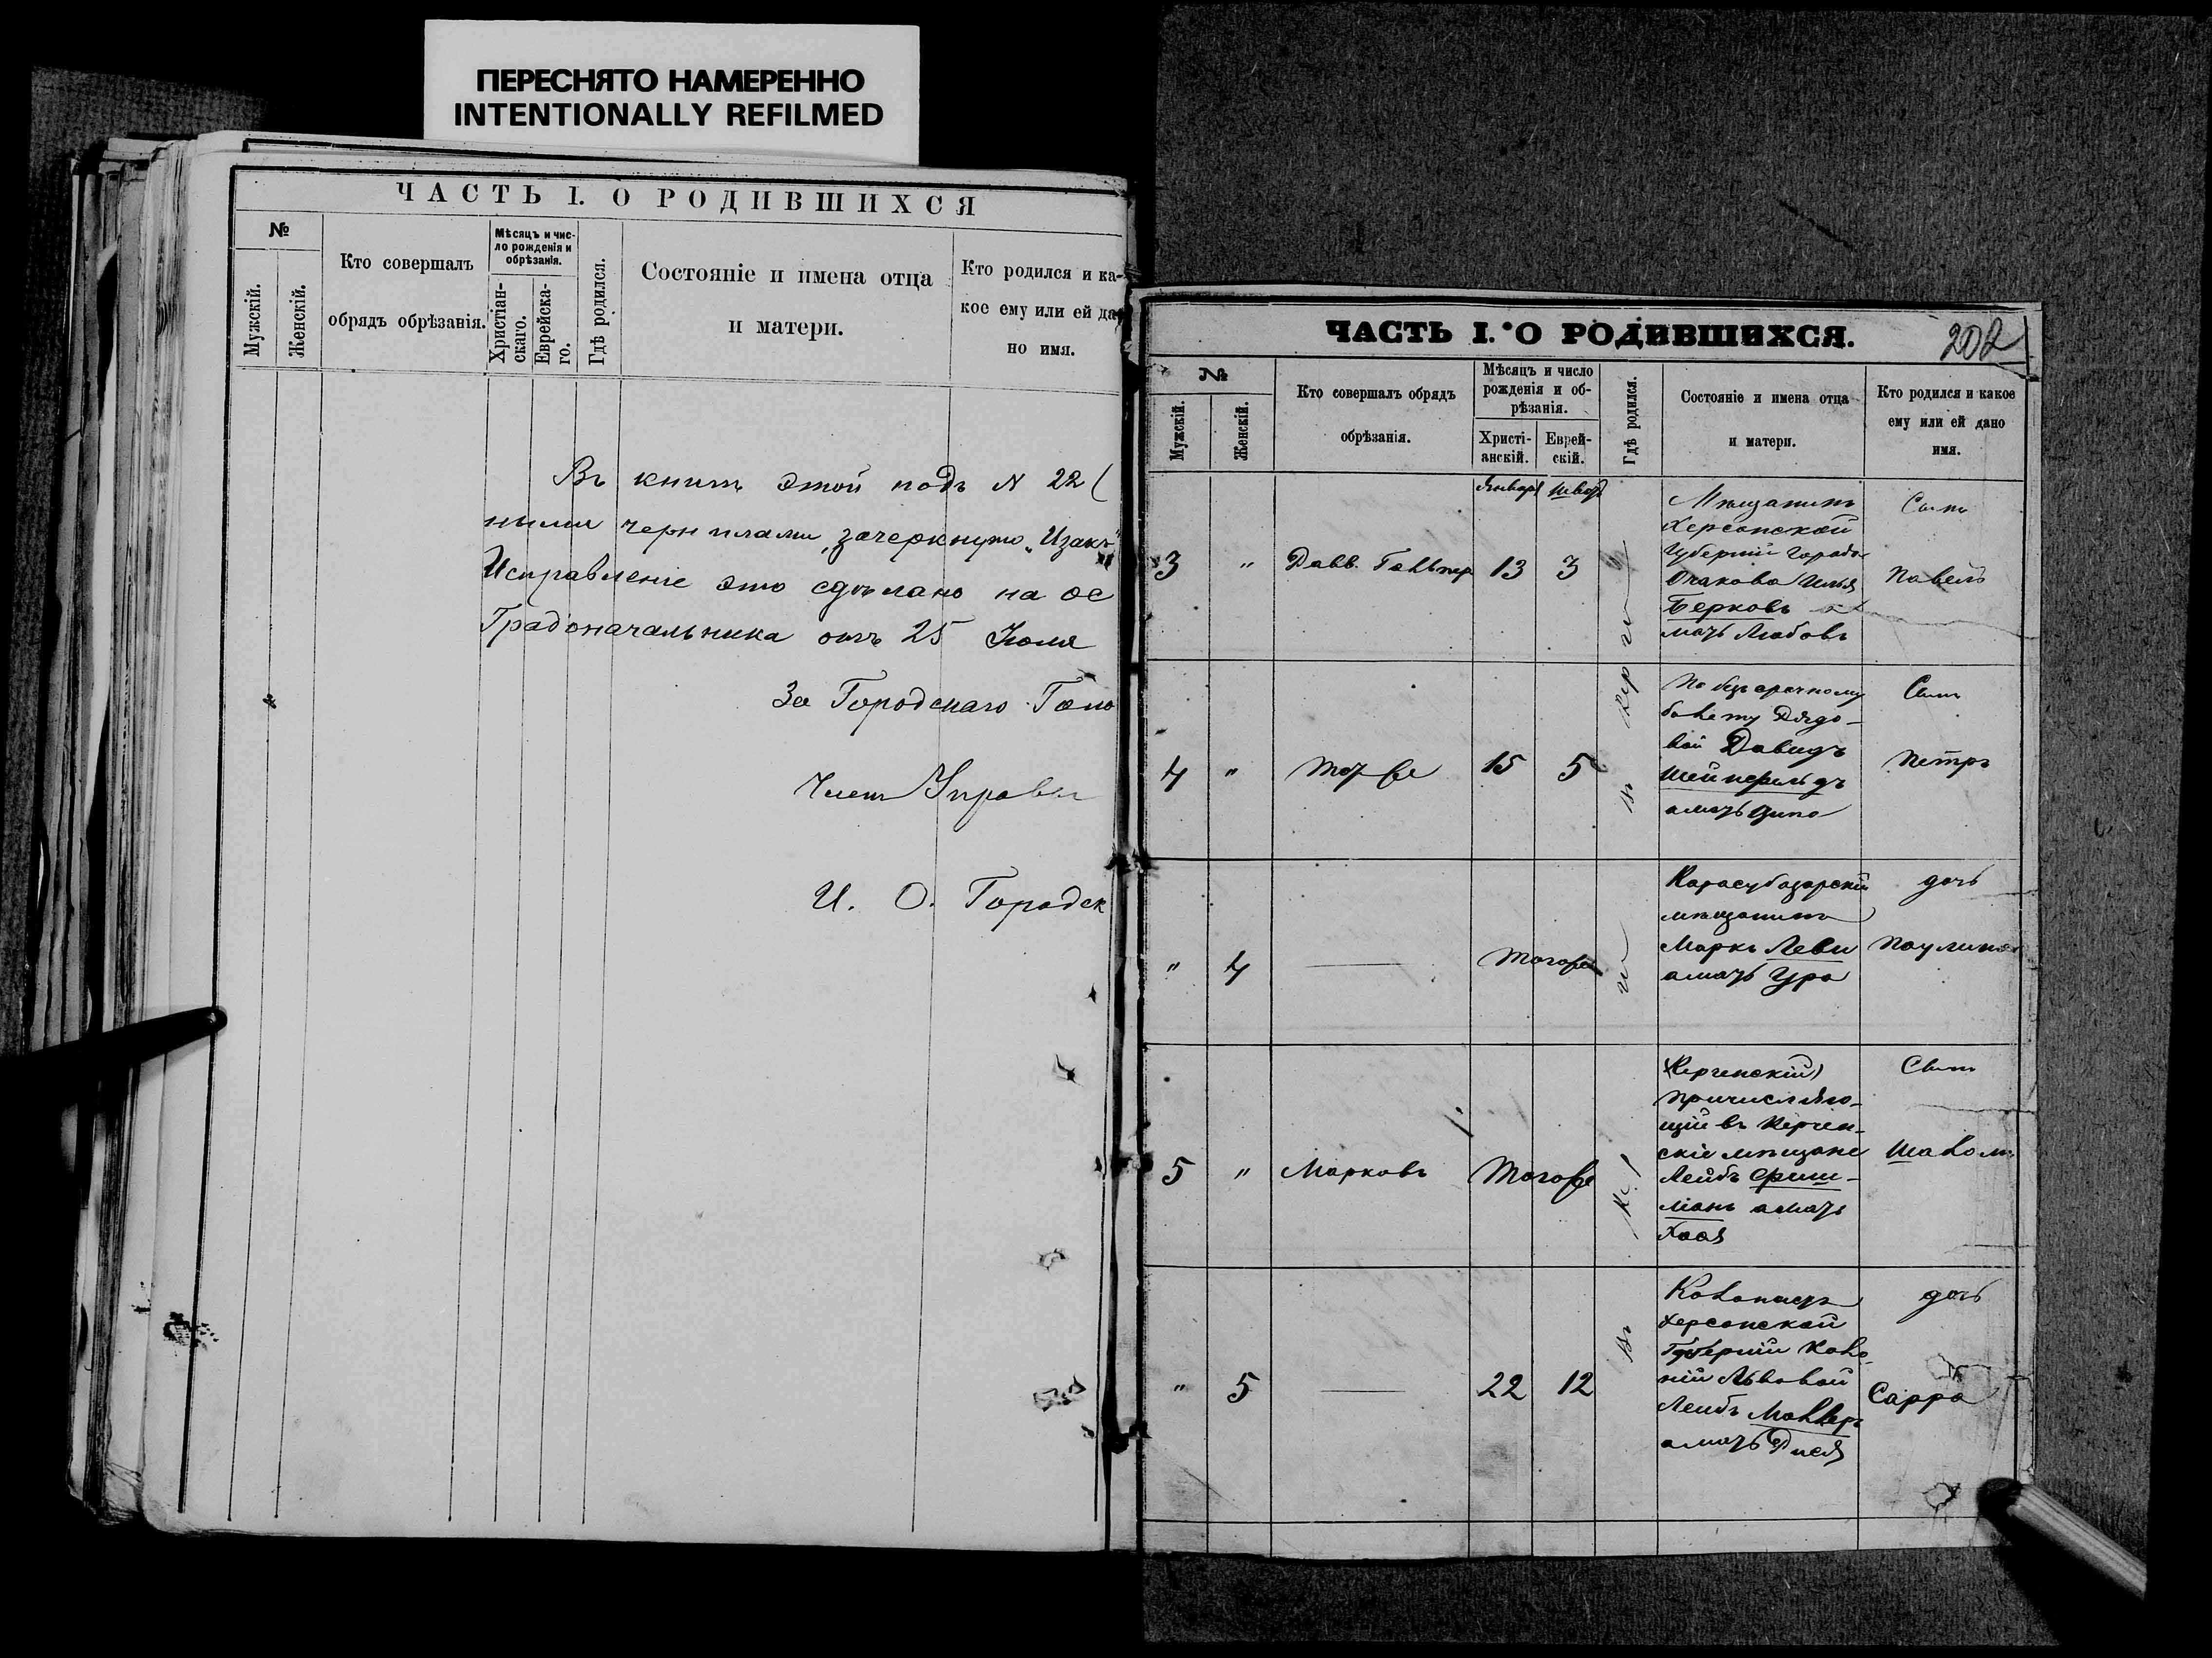 ПЕРЕСНЯТО НАМЕРЕННО
INTENTIONALLY REFILMED
ЧАСТЬ I. О РОДИВШИХСЯ
№
Мужскій.
Женскій.
Кто совершалъ
обрядъ обрѣзанія.
Мѣсяцъ и чис-
ло рожденія и
обрѣзанія.
Христіан-
скаго.
Еврейска-
го.
Гдѣ родился.
Состояніе и имена отца
и матери.
Кто родился и ка-
кое ему или ей да
но имя.
Въ книгѣ этой подъ N 22
ными чернилами, зачеркнуто „Изакъ"
Исправленіе это сдѣлано на ос
Градоначальника отъ 25 Іюля
За Городскаго Голо
Членъ Управы
И. О. Городск
ЧАСТЬ I. О РОДИВШИХСЯ.
202
№
Мужскій.
Женскій.
Кто совершалъ обрядъ
обрѣзанія.
Мѣсяцъ и число
рожденія и об-
рѣзанія.
Христі-
анскій.
Еврей-
скій.
Гдѣ родился.
Состояніе и имена отца
и матери.
Кто родился и какое
ему или ей дано
имя.
Января
3
"
Давв.
13
3
Мѣщанинъ
Херсонской
Губерніи Города
Очакова Илья
Берковъ а
мать Любовь
Сынъ
Павелъ
4
"
тотже
15
5
По безсрочному
билету Рядо-
вой Давидъ
Шейнфельдъ
а мать Ципа
Сынъ
Петръ
"
4
Тогоже
Карасубазарскій
мѣщанинъ
Маркъ Леви
а мать
дочь
Паулина
5
"
Марковъ
Тогоже
Керченскій
причисляю-
щій въ Керчен-
скіе мѣщане
Лейбъ Фриш-
манъ а мать
Хая
Сынъ
Шаломъ
"
5
22
12
Колонистъ
Херсонской
Губерніи Коло-
ніи Львовой
Лейбъ
а мать
дочь
Сарра